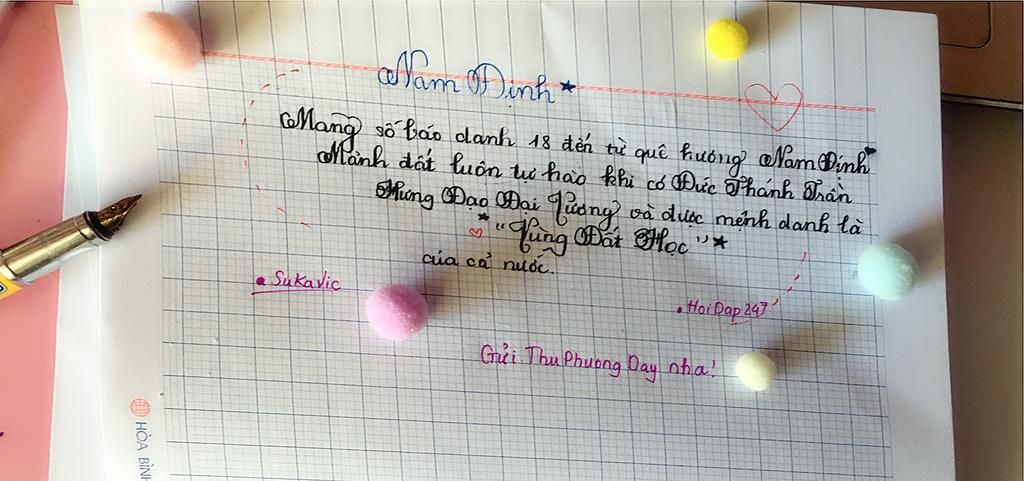 Nam Định
Mang số báo danh 18 đến từ quê hương Nam Định
Mảnh đất luôn tự hào khi có Đức Thánh Trần
Hưng Đạo Đại Vương và được mệnh danh là
"Vùng Đất Học"
của cả nước.
SuKaVic
HoiDap247
Gửi ThuPhuongDay nha!
HÒA BÌNH